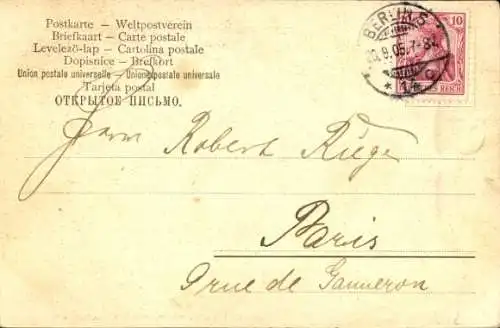 Postkarte – Weltpostverein
Briefkaart – Carte postale
Levelező-lap – Cartolina postale
Dopisnice – Brefkort
Union postale universelle – Unione postale universale
Tarjeta postal
ОТКРЫТОЕ ПИСЬМО.
BERLIN S.
9.05. 7-8
10
REICH
Herrn Robert Rüger
Paris
rue de